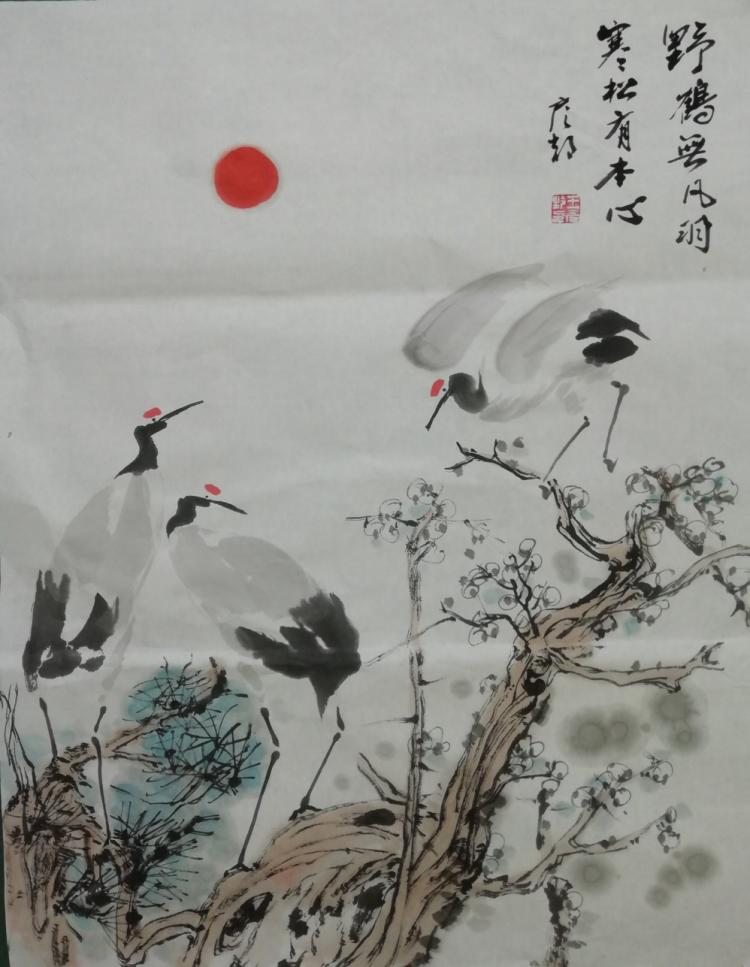 野鶴無凡羽
寒松有本心